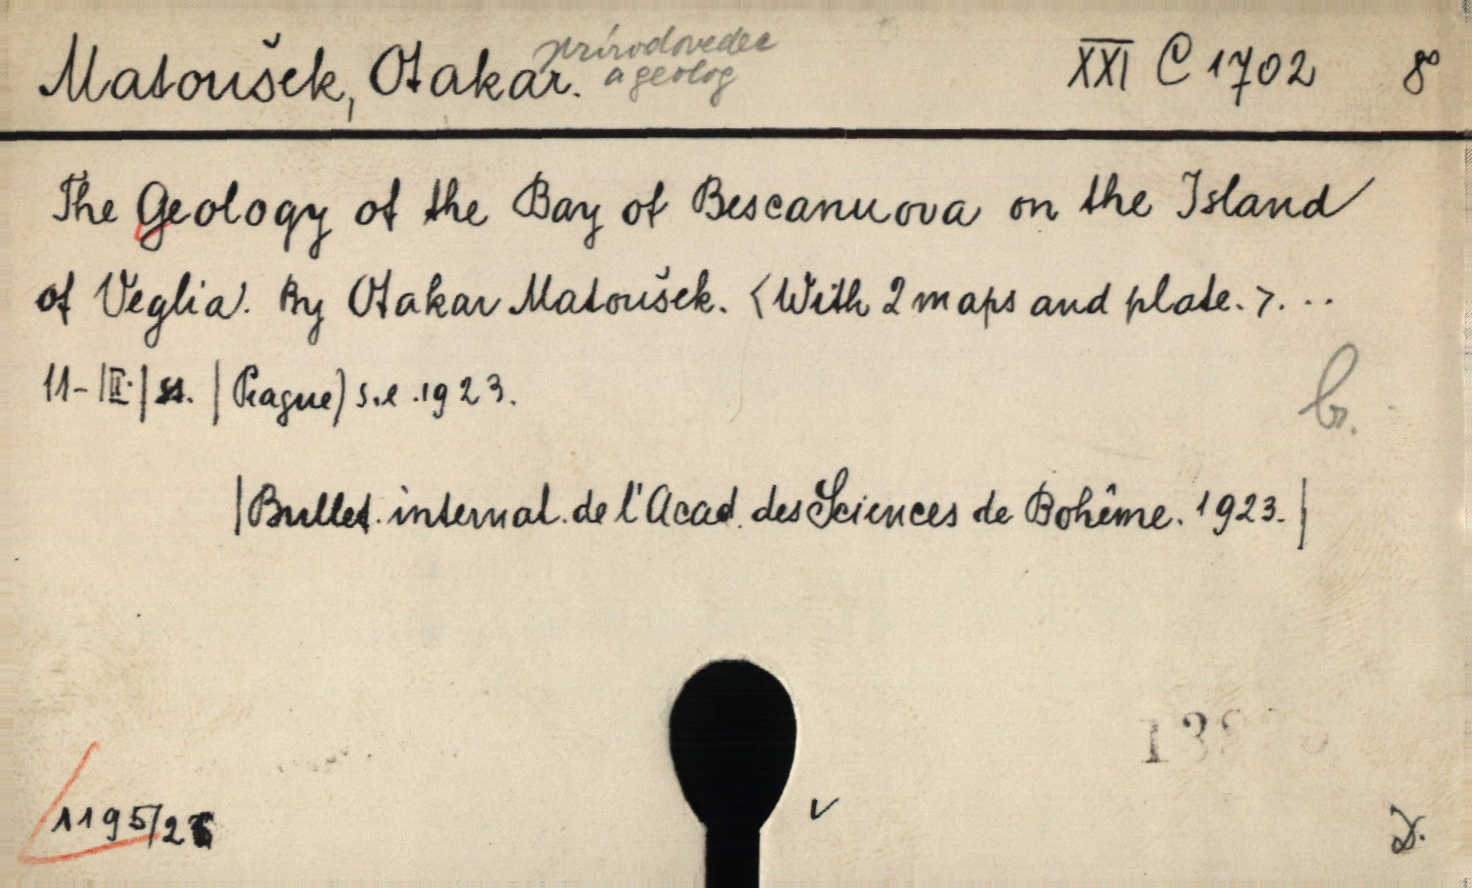 Matoušek, Otakar. přírodovedec a geolog XXI C 1702 8°
The Geology of the Bay of Bescanuova on the Island
of Veglia. By Otakar Matoušek. <With 2 maps and plate.>...
11-|II.| ss. | Prague) s.l. 1923.
br.
|Bullet. internat. de l'Acad. des Sciences de Bohême. 1923.|
1195/26
v
D.